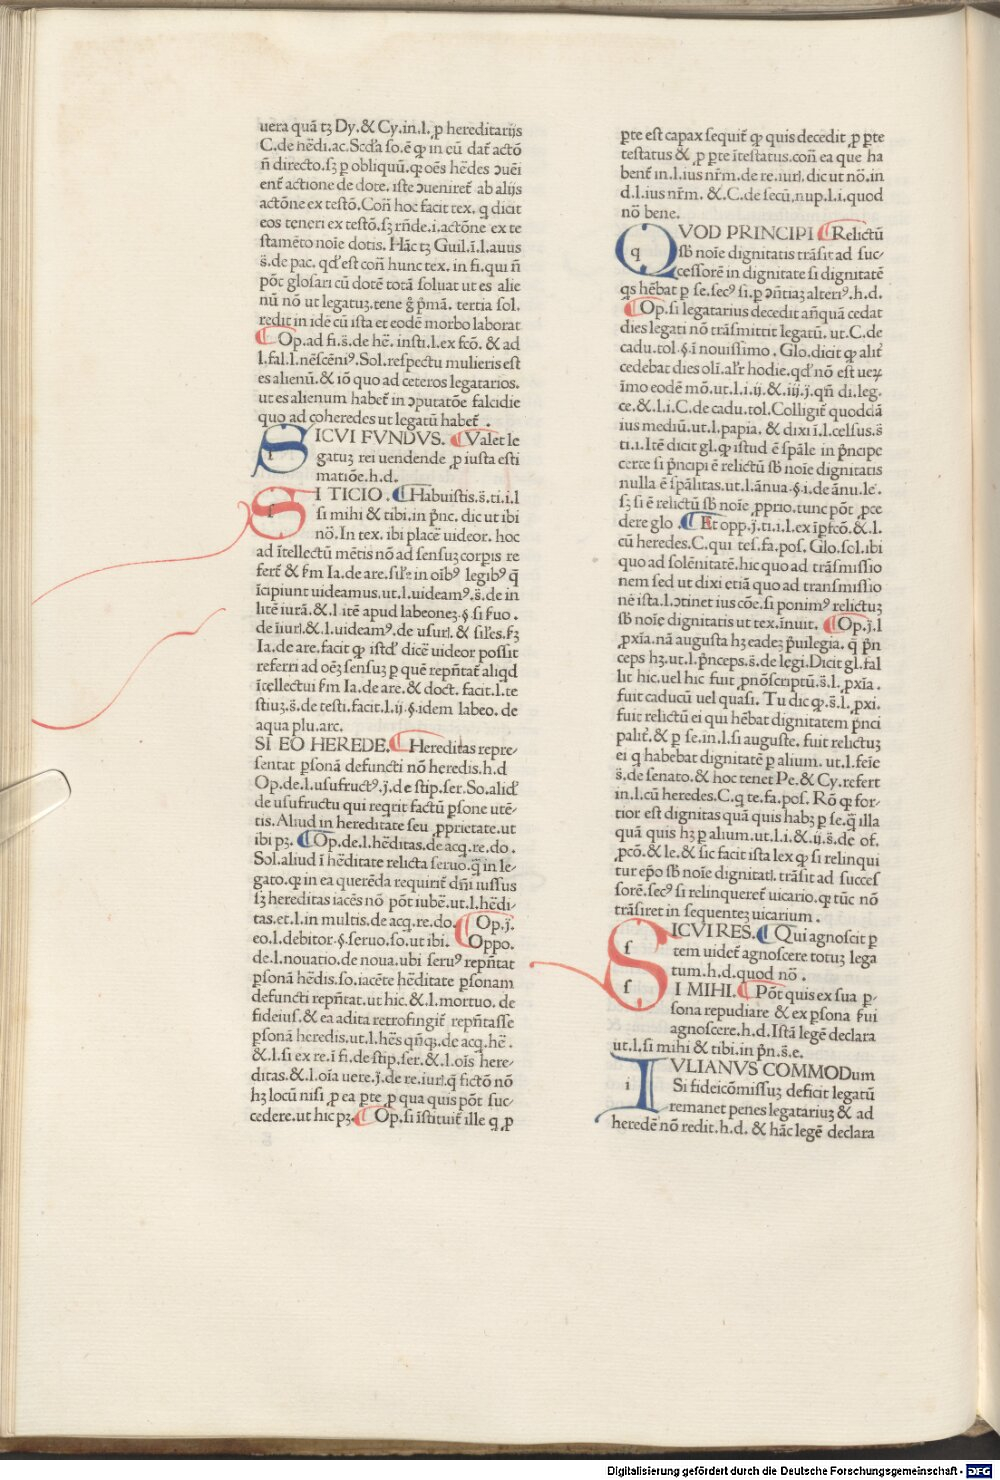 uera quā tʒ Dy.& Cy.in.l.ꝓ hereditarijs
C.de hēdi.ac.Scďa so.ē ꝙ in eū dať actō
n̄ directo.sʒ ꝑ obliquū.ꝙ oēs hēdes ↄuēi
enť actione de dote. iste ↄuenireť ab alijs
actōne ex testō.Con̄ hoc facit tex. q dicit
eos teneri ex testō.sʒ rn̄de.i.actōne ex te
stamēto noīe dotis. Hāc tʒ Guil.ī.l.auus
s̄.de pac. qď est con̄ hunc tex. in fi.qui n̄
pōt glosari cū dotē totā soluat ut es alie
nū nō ut legatuʒ.tene ḡ p̄mā. tertia sol.
redit in idē cū ista et eodē morbo laborat
Op.ad fi.s̄.de hē. insti.l.ex fcō. & ad
l.fal.l.nēscēniꝰ.Sol.respectu mulieris est
es alienū.& iō quo ad ceteros legatarios.
ut es alienum habeť in ↄputatōe falcidie
quo ad coheredes ut legatū habeť .
SICVI FVNDVS. Valet le
i
gatuʒ rei uendende ꝓ iusta esti
matiōe.h.d.
SI TICIO . Habuistis.s̄.ti.i.l
f
si mihi & tibi.in p̄nc. dic ut ibi
nō.In tex. ibi placē uideor. hoc
ad ītellectū mētis nō ad sensuʒ corpis re
ferť & fm Ia.de are.sił'e in oībꝰ legibꝰ q̄
īcipiunt uideamus.ut.l.uideamꝰ.s̄.de in
litē iurā.& .l itē apud labeoneʒ.§ si fuo .
de īiurł.& .l.uideamꝰ.de usurł. & siłes.fʒ
Ia.de are.facit ꝙ istď dicē uideor possit
referri ad oēʒ sensuʒ ꝑ quē repn̄tať aliqd
ītellectui fm Ia.de are.& doct. facit.l.te
stiuʒ.s̄.de testi.facit.l.ij.§.idem labeo. de
aqua plu.arc.
SI EO HEREDE. Hereditas repre-
sentat ꝑsonā defuncti nō heredis.h.d
Op.de.l.usufructꝰ.j.de stip.ser.So.aliď
de usufructu qui reqrit factū ꝑsone utē-
tis.Aliud in hereditate seu ꝓprietate.ut
ibi pʒ. Op.de.l.hēditas.de acq.re.do.
Sol.aliud ī hēditate relicta seruo.q̄ in le-
gato.ꝙ in ea querēda requiriť dn̄i iussus
sʒ hereditas iacēs nō pōt iubē.ut.l.hēdi-
tas.et.l.in multis.de acq.re.do. Op.j.
eo.l.debitor.§.seruo.so.ut ibi. Oppo.
de.l.nouatio.de noua.ubi seruꝰ repn̄tat
ꝑsonā hēdis.so.iacēte hēditate ꝑsonam
defuncti repn̄tat.ut hic.&.l.mortuo. de
fideius.& ea adita retrofingiť repn̄tasse
ꝑsonā heredis.ut.l.hēs qn̄q̨.de acq.hē.
&.l.si ex re.ī fi.de stip.ser.&.l.oīs here-
ditas.&.l.oīa uere.j.de re.iurł.q̄ fictō nō
hʒ locū nisi ꝓ ea ꝑte ꝓ qua quis pōt suc-
cedere.ut hic pʒ. Op.si īstituiť ille q ꝓ
ꝑte est capax sequiť ꝙ quis decedit ꝓ ꝑte
testatus & ꝓ ꝑte ītestatus.con̄ ea que ha
benť in.l.ius nr̄m.de re.iurł.dic ut nō.in
d.l.ius nr̄m. &.C.de secū.nup.l.i.quod
nō bene.
QVOD PRINCIPI Relictū
q
sb noīe dignitatis trāsit ad suc-
cessorē in dignitate si dignitatē
qs hēbat ꝑ se.secꝰ si.ꝑ ↄn̄tiaʒ alteriꝰ.h.d.
Op.si legatarius decedit an̄quā cedat
dies legati nō trāsmittit legatū. ut.C.de
cadu.tol.§.ī nouissimo . Glo.dicit ꝙ aliť
cedebat dies oli.al'r hodie.qď nō est ueꝝ
īmo eodē mō.ut.l.i.ij.&.iij.j.qn̄ di.leg.
ce.&.l.i.C.de cadu.tol.Colligiť quodďā
ius mediū.ut.l.papia. & dixi ī.l.celsus.s̄
ti.i.Itē dicit gl.ꝙ istud ē spāle in p̄ncipe
certe si p̄ncipi ē relictū sb noīe dignitatis
nulla ē spālitas.ut.l.ānua.§.i.de ānu.le.
sʒ si ē relictū sb noīe ꝓprio.tunc pōt ꝓce
dere glo . Et opp.j.ti.i.l.ex īpfcō.&.l.
cū heredes.C.qui tes.fa.pos. Glo.sol.ibi
quo ad solēnitatē.hic quo ad trāsmissio
nem sed ut dixi etiā quo ad transmissio
nē ista.l.ↄtinet ius cōe.si ponimꝰ relictuʒ
sb noīe dignitatis ut tex.īnuit. Op.j.l
ꝓxīa.nā augusta hʒ eadeʒ p̄uilegia. q̄ p̄n
ceps hʒ.ut.l.p̄nceps.s̄.de legi.Dicit gl.fal
lit hic.uel hic fuit pn̄oscriptū.s̄.l.ꝓxīa.
fuit caducū uel quasi. Tu dic ꝙ.s̄.l.ꝓxi.
fuit relictū ei qui hēbat dignitatem p̄nci
paliť.& ꝑ se.in.l.si auguste. fuit relictuʒ
ei q habebat dignitatē ꝑ alium. ut.l.feīe
s̄.de senato.& hoc tenet Pe.& Cy.refert
in.l.cū heredes.C.q te.fa.pos. Rō ꝙ for-
tior est dignitas quā quis habʒ ꝑ se.q̄ illa
quā quis hʒ ꝑ alium.ut.l.i.&.ij.s̄.de of.
ꝓcō.& le.& sic facit ista lex ꝙ si relinqui
tur ep̄o sb noīe dignitatł. trāsit ad succes
sorē.secꝰ si relinquereť uicario.ꝙ tūc nō
trāsiret in sequenteʒ uicarium .
SICVI RES. Qui agnoscit ꝑ
f
tem uideť agnoscere totuʒ lega
tum.h.d.quod nō .
SI MIHI. Pōt quis ex sua ꝑ-
f
sona repudiare & ex ꝑsona sui
agnoscere.h.d.Istā legē declara
ut.l.si mihi & tibi.in p̄n.s̄.e.
IVLIANVS COMMODum
i
Si fideicōmissuʒ deficit legatū
remanet penes legatariuʒ & ad
heredē nō redit.h.d. & hāc legē declara
Digitalisierung gefördert durch die Deutsche Forschungsgemeinschaft - DFG